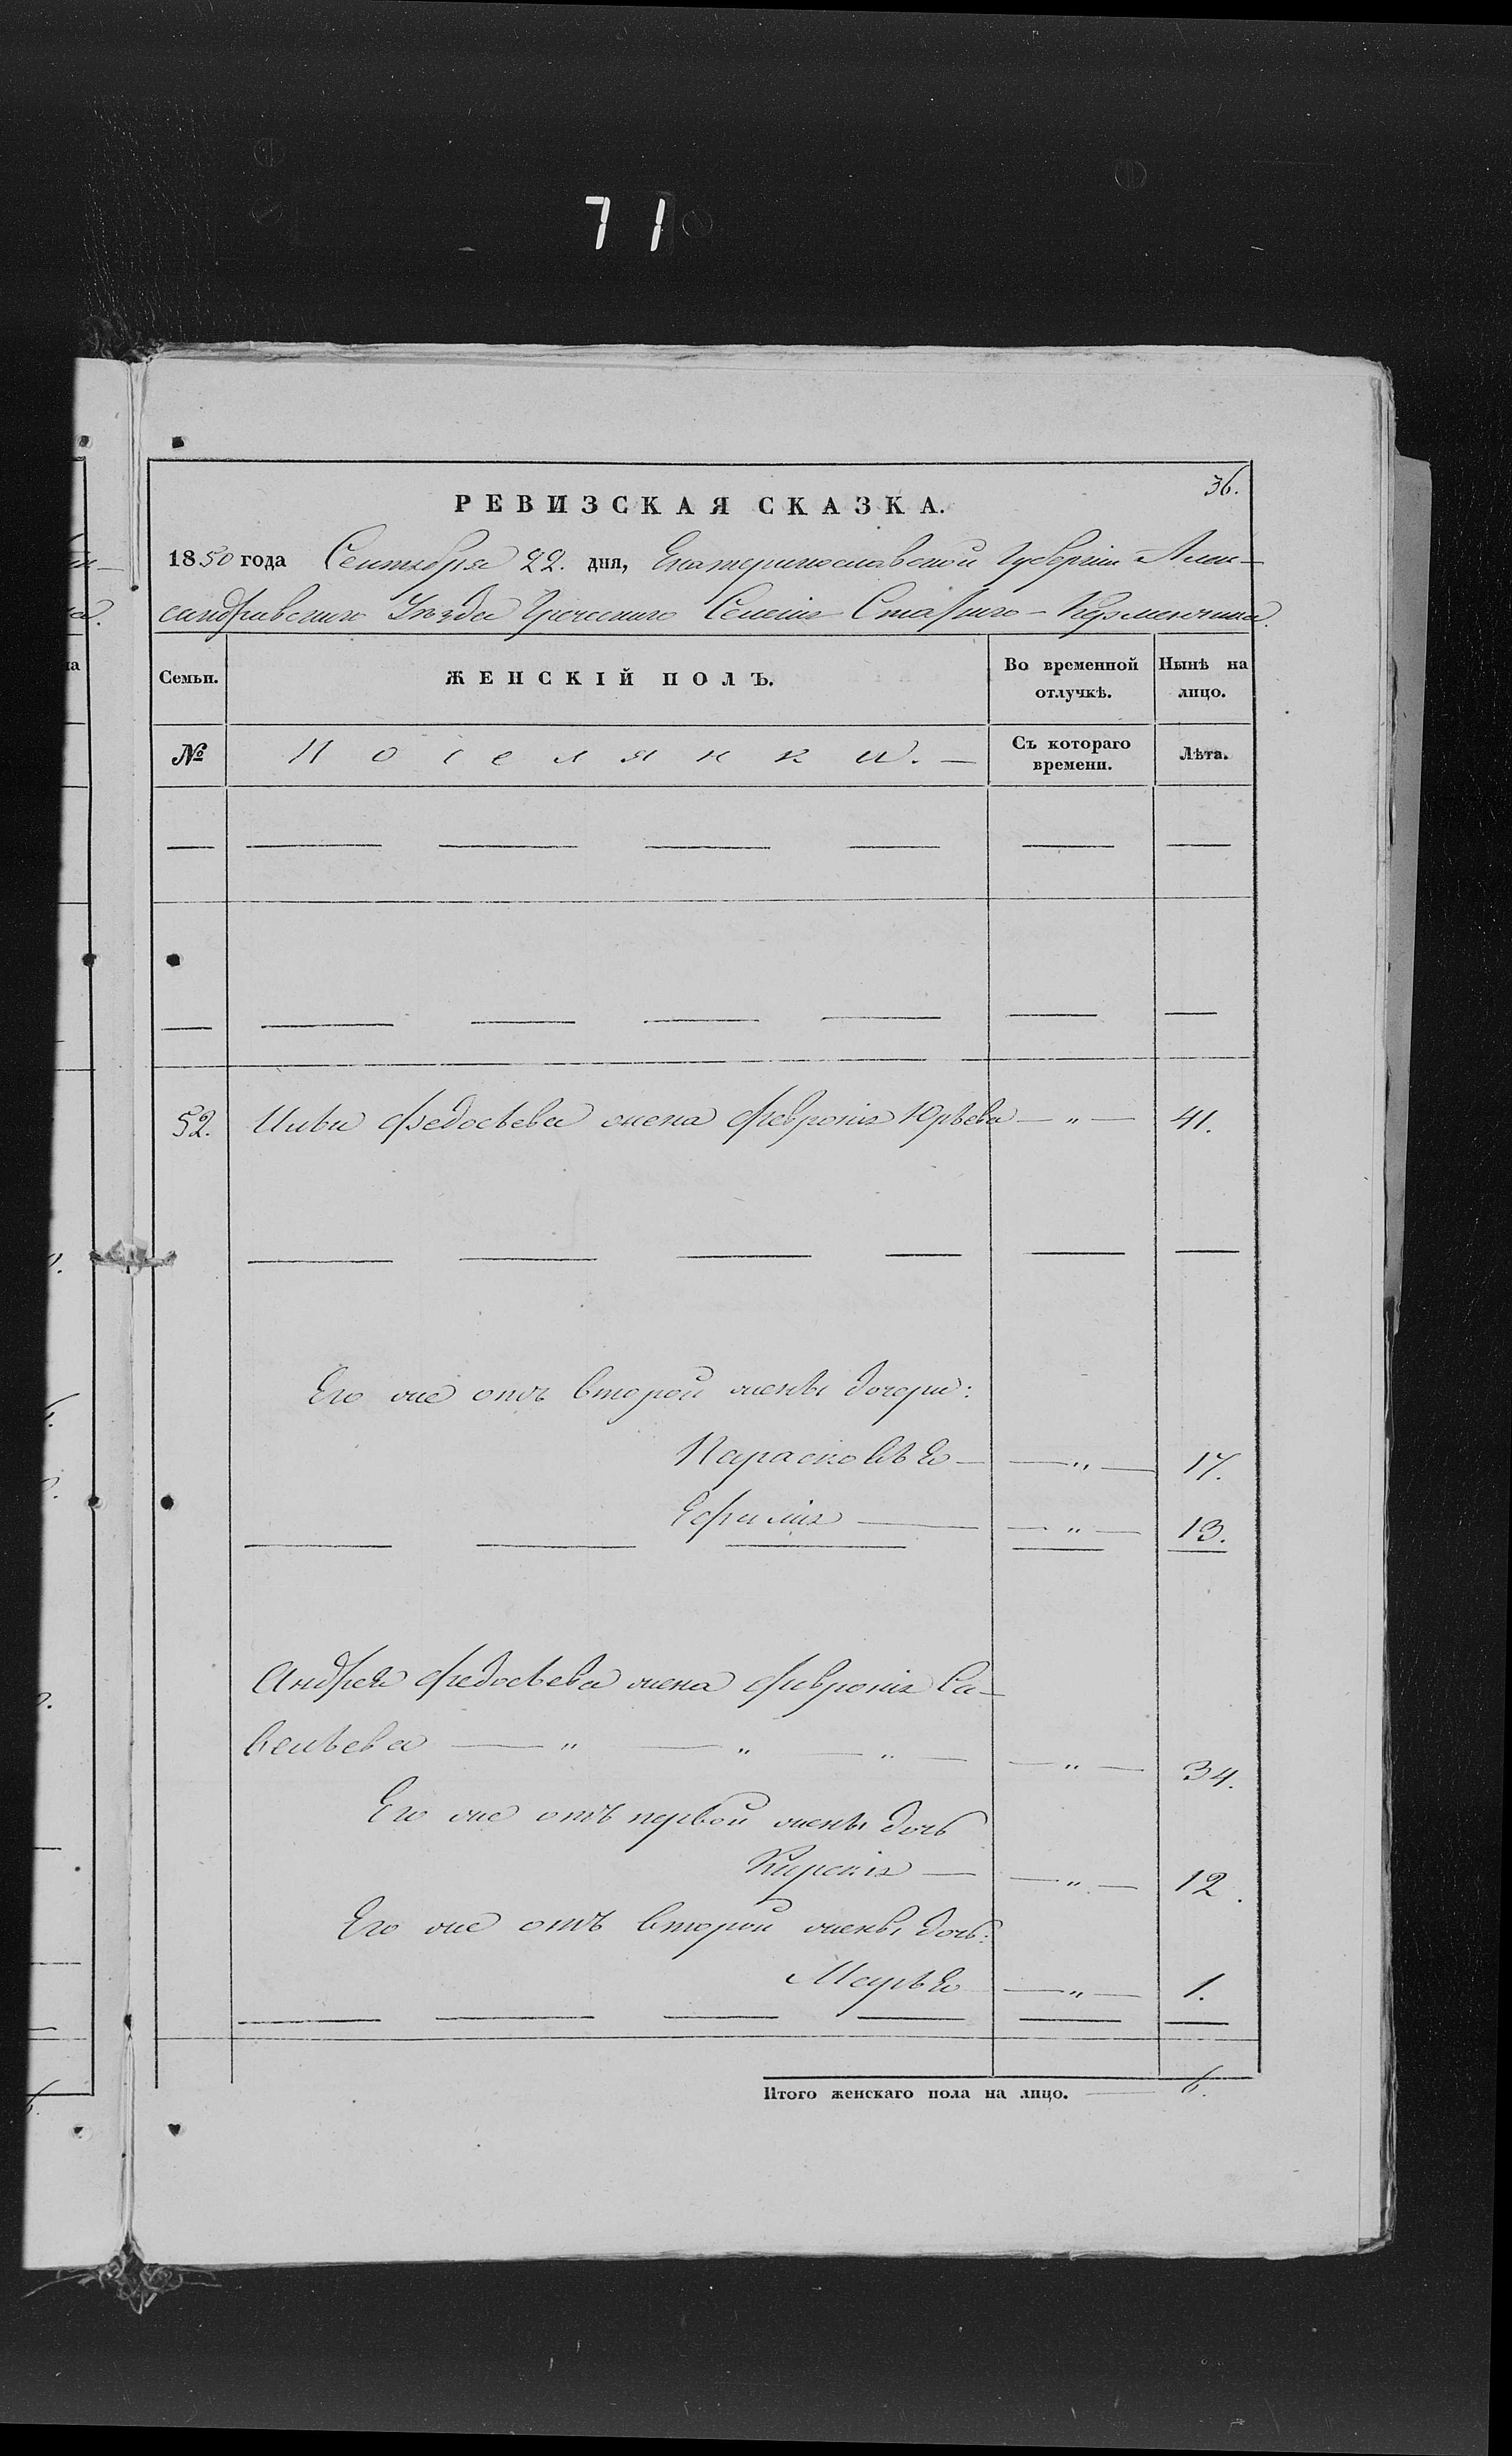 71
36.
РЕВИЗСКАЯ СКАЗКА.
1850 года Сентября 22. дня, Екатеринославской Губерніи Алек-
сандровскаго Уѣзда Греческаго Селенія Стараго-Керменчика.
Семьи. ЖЕНСКІЙ ПОЛЪ. Во временной отлучкѣ. Нынѣ на лицо.
№ Поселянки. — Съ котораго времени. Лѣта.
52. Ильи Федосѣева жена Февронія Юрьева — " — 41.
Его же отъ второй жены дочери:
Парасковья — — " — 17.
Ефимія — — " — 13.
Андрея Федосѣева жена Февронія Са-
вельева — " — " — " — — " — 34.
Его же отъ первой жены дочь
— — " — 12.
Его же отъ второй жены дочь:
Марья — " — 1.
Итого женскаго пола на лицо. — 6.